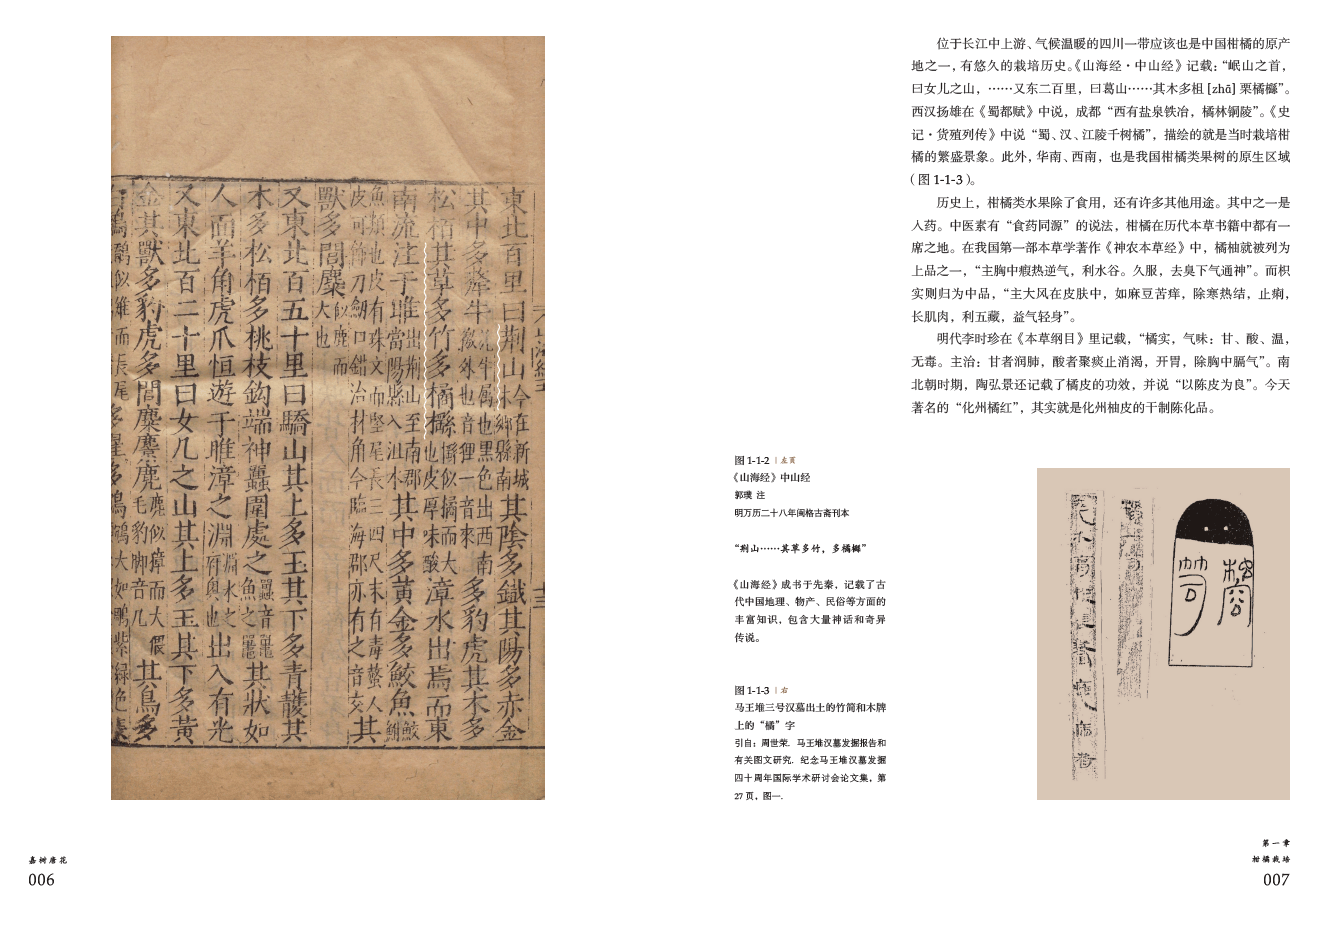 東北百里曰荊山今在新城沶鄉縣南其陰多鐵其陽多赤金
其中多犛牛旄牛屬也黑色出西南徼外也音貍一音來多豹虎其木多
松栢其草多竹多橘櫾櫾似橘而大也皮厚味酸漳水出焉而東
南流注于雎出荊山至南郡當陽縣入沮水其中多黃金多鮫魚鮫鮒
魚類也皮有珠文而堅尾長三四尺末有毒螫人皮可飾刀劒口錯治材角今臨海郡亦有之音交其
獸多閭麋似鹿而大也
又東北百五十里曰驕山其上多玉其下多青䨼其
木多松栢多桃枝鈎端神𧕦圍處之𧕦音鼉魚之鼉其狀如
人面羊角虎爪恒遊于雎漳之淵淵水之府奧也出入有光
又東北百二十里曰女几之山其上多玉其下多黃
金其獸多豹虎多閭麋麖麂麂似獐而大偎毛豹脚音几其鳥多
嘉树唐花
006
位于长江中上游、气候温暖的四川一带应该也是中国柑橘的原产
地之一，有悠久的栽培历史。《山海经·中山经》记载：“岷山之首，
曰女儿之山，……又东二百里，曰葛山……其木多柤 [zhā] 栗橘櫾”。
西汉扬雄在《蜀都赋》中说，成都“西有盐泉铁冶，橘林铜陵”。《史
记·货殖列传》中说“蜀、汉、江陵千树橘”，描绘的就是当时栽培柑
橘的繁盛景象。此外，华南、西南，也是我国柑橘类果树的原生区域
（图 1-1-3）。
历史上，柑橘类水果除了食用，还有许多其他用途。其中之一是
入药。中医素有“食药同源”的说法，柑橘在历代本草书籍中都有一
席之地。在我国第一部本草学著作《神农本草经》中，橘柚就被列为
上品之一，“主胸中瘕热逆气，利水谷。久服，去臭下气通神”。而枳
实则归为中品，“主大风在皮肤中，如麻豆苦痒，除寒热结，止痢，
长肌肉，利五藏，益气轻身”。
明代李时珍在《本草纲目》里记载，“橘实，气味：甘、酸、温，
无毒。主治：甘者润肺，酸者聚痰止消渴，开胃，除胸中膈气”。南
北朝时期，陶弘景还记载了橘皮的功效，并说“以陈皮为良”。今天
著名的“化州橘红”，其实就是化州柚皮的干制陈化品。
图 1-1-2 | 左页
《山海经》中山经
郭璞 注
明万历二十八年阆格古斋刊本
“荆山……其草多竹，多橘櫾”
《山海经》成书于先秦，记载了古
代中国地理、物产、民俗等方面的
丰富知识，包含大量神话和奇异
传说。
图 1-1-3 | 右
马王堆三号汉墓出土的竹简和木牌
上的“橘”字
引自：周世荣. 马王堆汉墓发掘报告和
有关图文研究. 纪念马王堆汉墓发掘
四十周年国际学术研讨会论文集，第
27 页，图一.
第一章
柑橘栽培
007